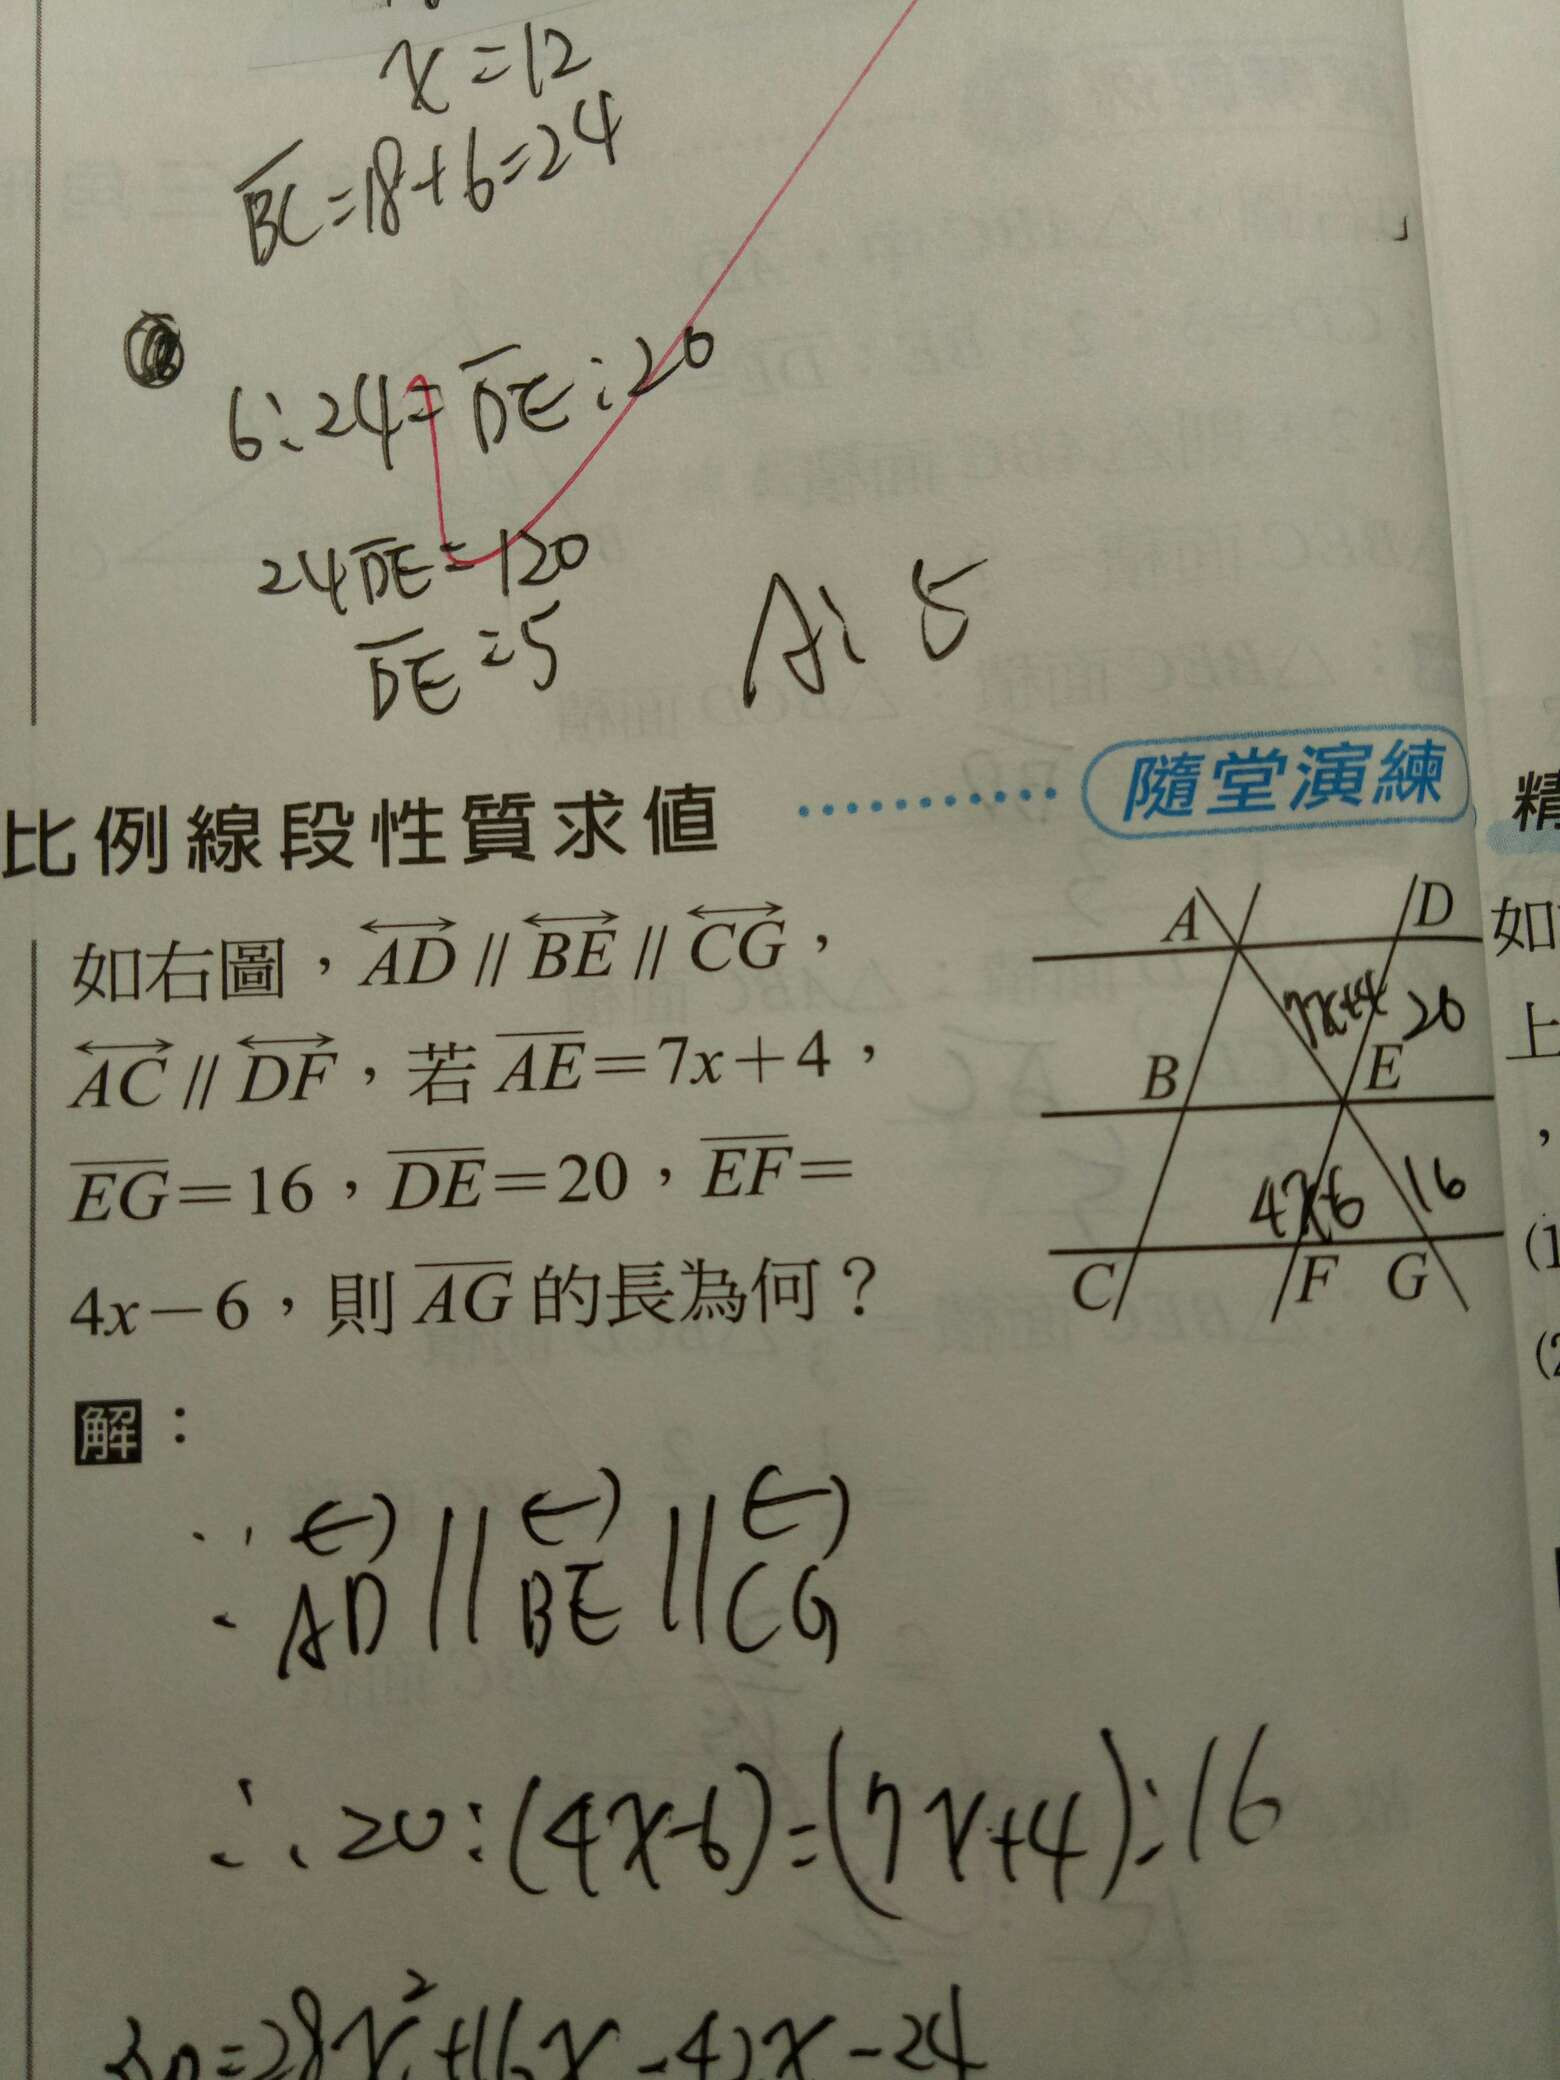 x=12
BC=18+6=24
6:24=DE:20
24DE=120
DE=5
A:5
比例線段性質求值 ………… 隨堂演練
精
如右圖，AD // BE // CG，
AC // DF，若 AE=7x+4，
EG=16，DE=20，EF=
4x-6，則 AG 的長為何？
A
D
7x+4
20
B
E
4x-6
16
C
F
G
如
上
，
(1
(2
解：
∵ AD // BE // CG
∴ 20:(4x-6)=(7x+4):16
=28x²+16x-42x-24